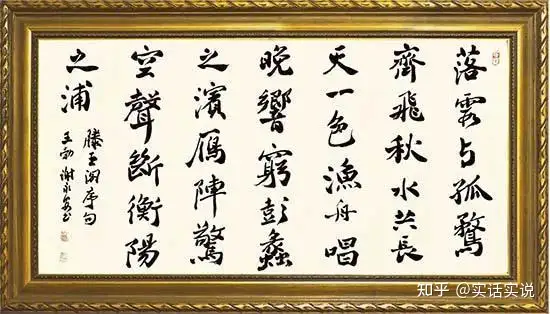 落霞与孤鶩
齊飛秋水共長
天一色漁舟唱
晚響窮彭蠡
之濱鴈陣驚
空聲斷衡陽
之浦
滕王閣序句
王勃 谢永
知乎 @实话实说